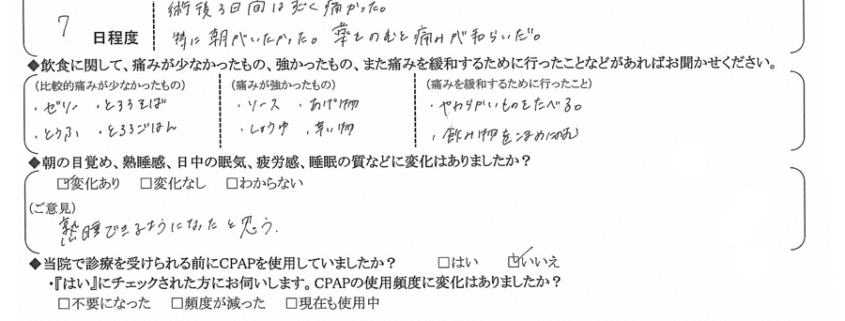 術後3日間はひどく痛かった。
7 日程度 特に朝がいたかった。薬をのむと痛みが和らいだ。
◆飲食に関して、痛みが少なかったもの、強かったもの、また痛みを緩和するために行ったことなどがあればお聞かせください。
(比較的痛みが少なかったもの) (痛みが強かったもの) (痛みを緩和するために行ったこと)
・ゼリー ・とろろそば ・ソース ・あげ物 ・やわらかいものをたべる。
・とうふ ・とろろごはん ・しょうゆ ・辛い物 ・飲み物をこまめにのむ
◆朝の目覚め、熟睡感、日中の眠気、疲労感、睡眠の質などに変化はありましたか?
☑変化あり □変化なし □わからない
(ご意見)
熟睡できるようになったと思う。
◆当院で診療を受けられる前にCPAPを使用していましたか? □はい ☑いいえ
・『はい』にチェックされた方にお伺いします。CPAPの使用頻度に変化はありましたか?
□不要になった □頻度が減った □現在も使用中